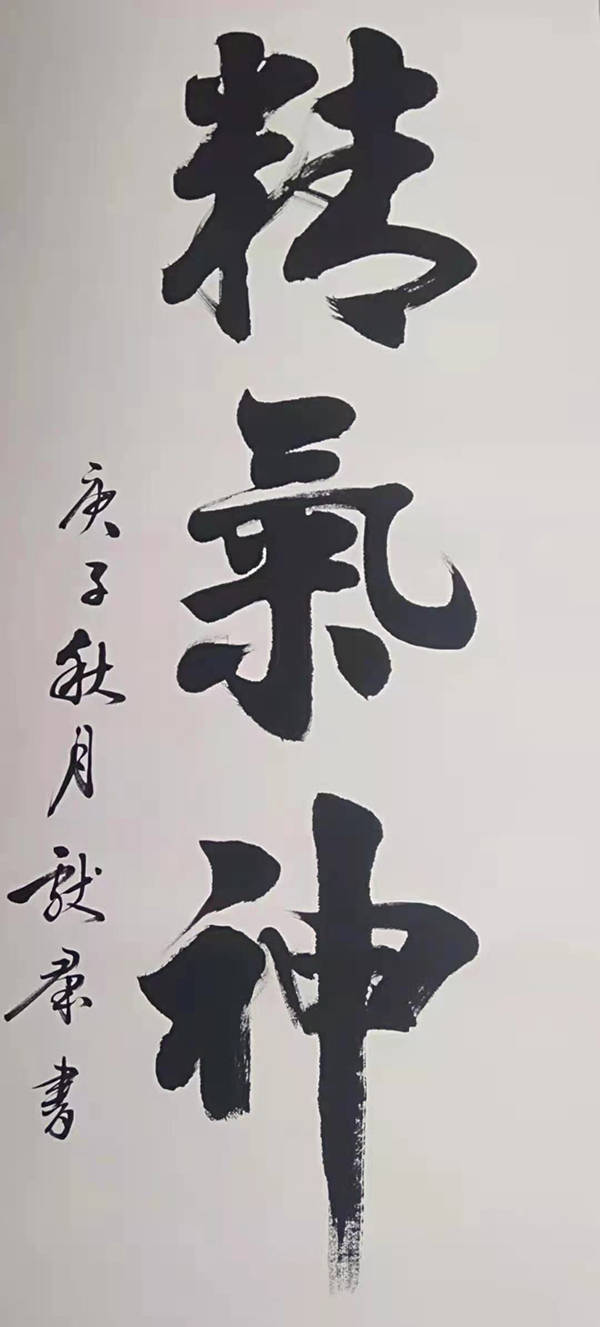 精氣神
庚子秋月献群書